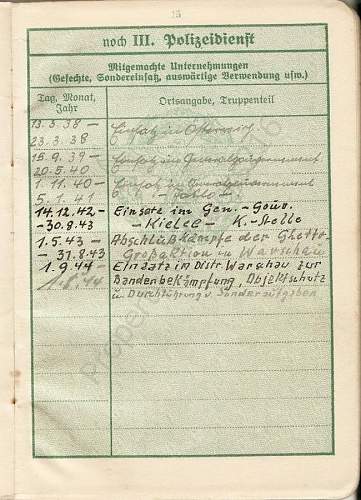 15
noch III. Polizeidienst
Mitgemachte Unternehmungen
(Gefechte, Sondereinsatz, auswärtige Verwendung usw.)
Tag, Monat, Jahr
Ortsangabe, Truppenteil
13.3.38 - Einsatz in Österreich
23.3.38
15.9.39 - Einsatz im Generalgouvernement
20.5.40
1.11.40 - Einsatz im Generalgouvernement
5.1.41
14.12.42 - Einsatz im Gen.-Gouv.
- 30.8.43 - Kielce - K.-Stelle
1.5.43 - Abschlußkämpfe der Ghetto-
- 31.8.43 Großaktion in Warschau
1.9.44 - Einsatz in Distr. Warschau zur
Bandenbekämpfung, Objektschutz
u. Durchführung v. Sonderaufgaben